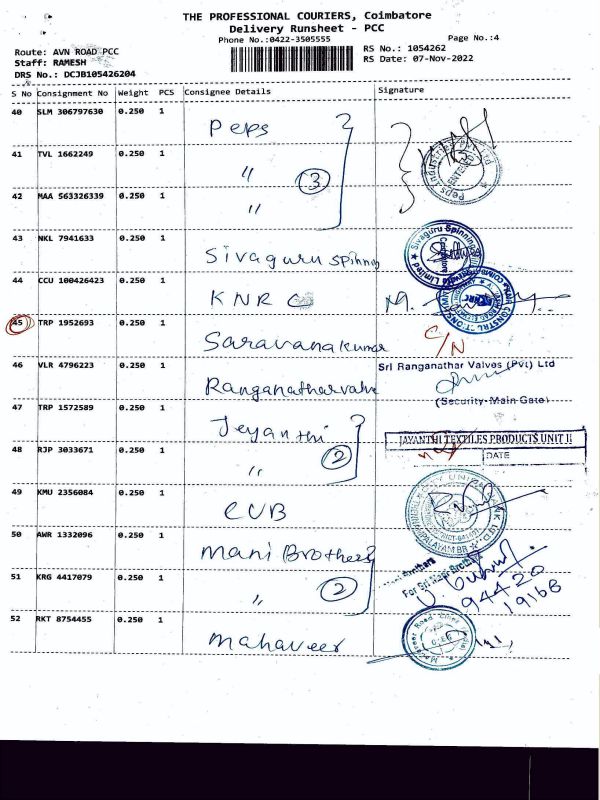 THE PROFESSIONAL COURIERS, Coimbatore
Delivery Runsheet - PCC
Phone No.:0422-3505555
Page No.:4
Route: AVN ROAD PCC
RS No.: 1054262
Staff: RAMESH
RS Date: 07-Nov-2022
DRS No.: DCJB105426204
S No Consignment No Weight PCS Consignee Details Signature
40 SLM 306797630 0.250 1
Peps
41 TVL 1662249 0.250 1
" 3
Peps Industries Pvt Ltd
42 MAA 563326339 0.250 1
"
43 NKL 7941633 0.250 1
Sivaguru Spinning
Sivaguru Spinning Limited
44 CCU 100426423 0.250 1
KNRC
KNR CONSTRUCTIONS
45 TRP 1952693 0.250 1
Saravanakumar
C/N
46 VLR 4796223 0.250 1
Sri Ranganathar Valves (Pvt) Ltd
Ranganatharvalve
(Security-Main Gate)
47 TRP 1572589 0.250 1
Jeyanthi
JAYANTHI TEXTILES PRODUCTS UNIT II
48 RJP 3033671 0.250 1
" 2
DATE
49 KMU 2356084 0.250 1
CUB
50 AWR 1332096 0.250 1
Mani Brothers
Mani Brothers
For Sri Mani Brothers
51 KRG 4417079 0.250 1
" 2
94420
19168
52 RKT 8754455 0.250 1
Mahaveer